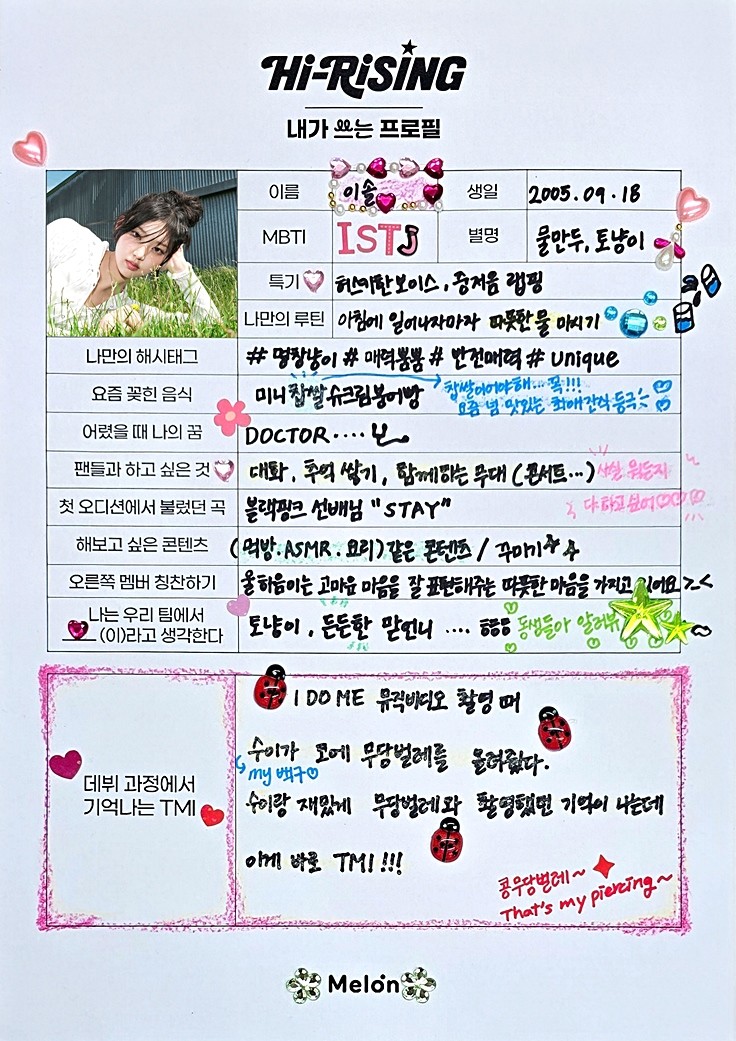 Hi-RiSING
내가 쓰는 프로필
이름 이솔 생일 2005.09.18
MBTI ISTJ 별명 물만두, 토냥이
특기 허스키한 보이스, 중저음 랩핑
나만의 루틴 아침에 일어나자마자 따뜻한 물 마시기
나만의 해시태그 # 멍창냥이 # 매력뿜뿜 # 반전매력 # unique
요즘 꽂힌 음식 미니 찹쌀 슈크림붕어빵 찹쌀이어야해... 꼭!!!
요즘 넘 맛있는 최애간식 등극
어렸을 때 나의 꿈 DOCTOR ....
팬들과 하고 싶은 것 대화, 추억 쌓기, 함께하는 무대 (콘서트...) 사실 뭐든지
다 하고 싶어
첫 오디션에서 불렀던 곡 블랙핑크 선배님 "STAY"
해보고 싶은 콘텐츠 (먹방.ASMR.요리)같은 콘텐츠 / 꾸미기
오른쪽 멤버 칭찬하기 울하음이는 고마움 마음을 잘 표현해주는 따뜻한 마음을 가지고 있어요 >_<
나는 우리 팀에서
___(이)라고 생각한다 토냥이, 든든한 맏언니 .... 동생들아 알러뷰
I DO ME 뮤직비디오 촬영 때
수이가 코에 무당벌레를 올려줬다.
my 백구
데뷔 과정에서
기억나는 TMI
수이랑 재밌게 무당벌레와 촬영했던 기억이 나는데
이게 바로 TMI !!!
콩무당벌레~
That's my piercing~
Melon